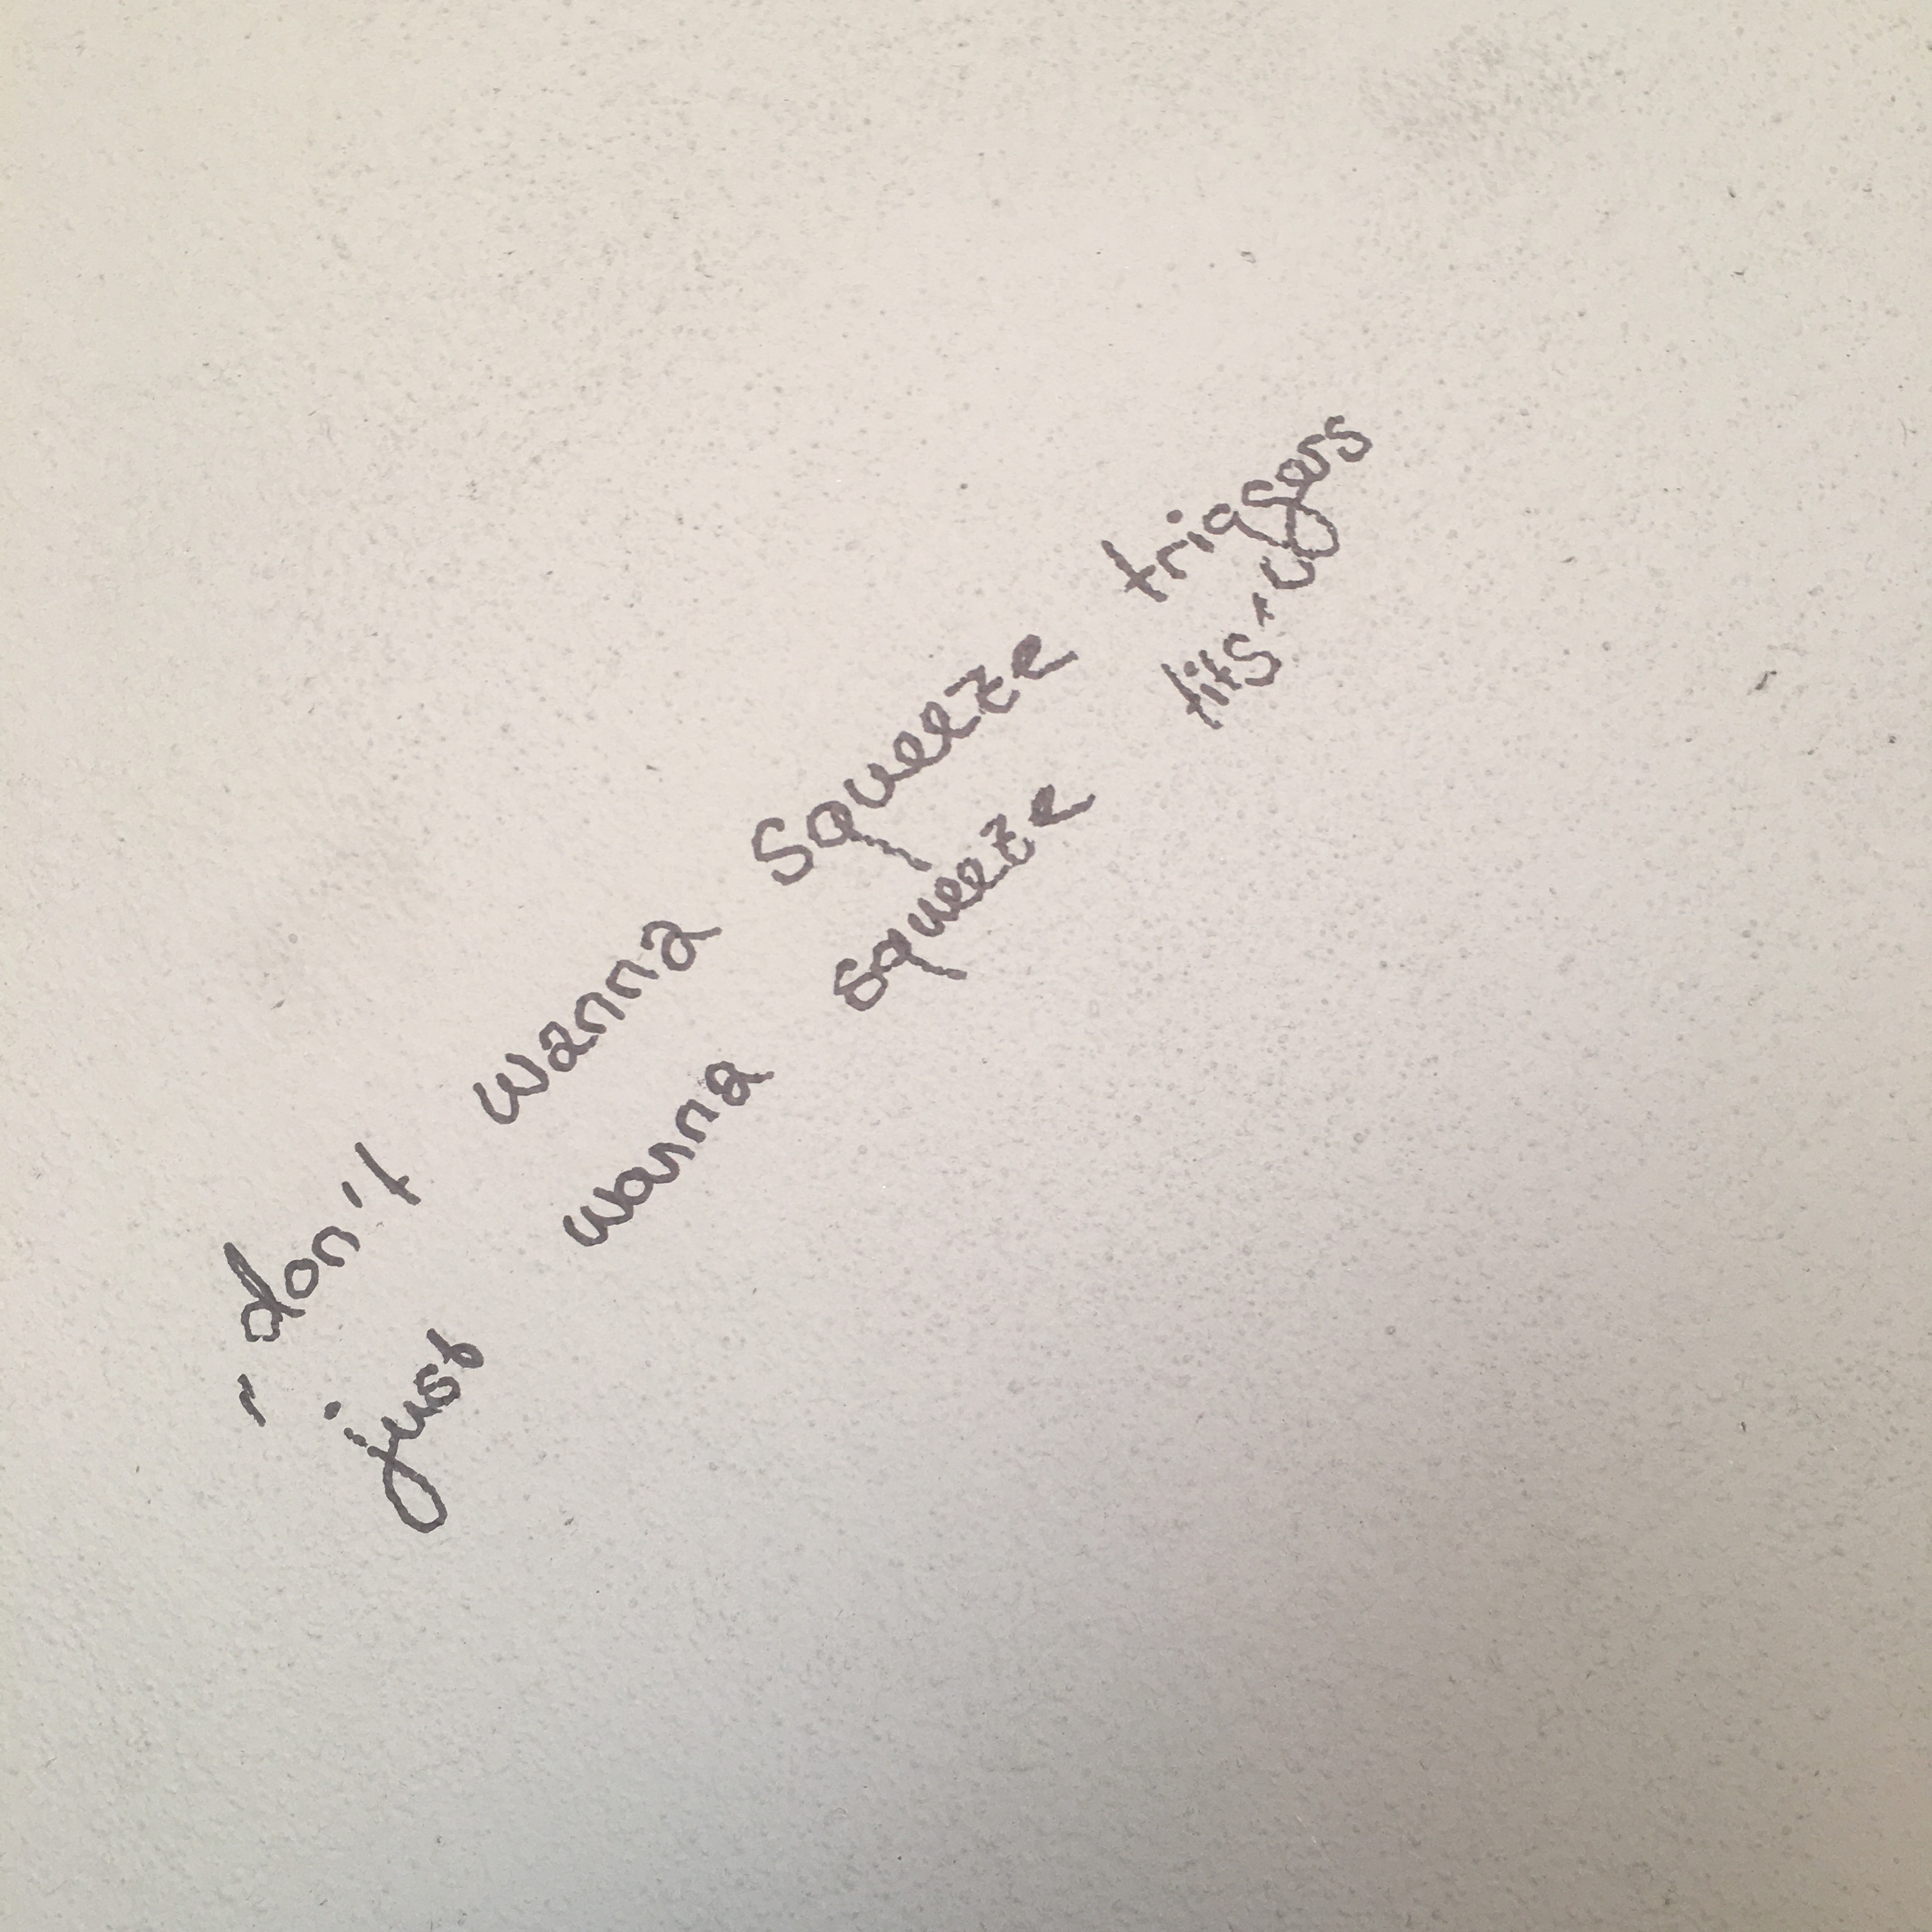 "don't wanna squeeze triggers
just wanna squeeze tits"